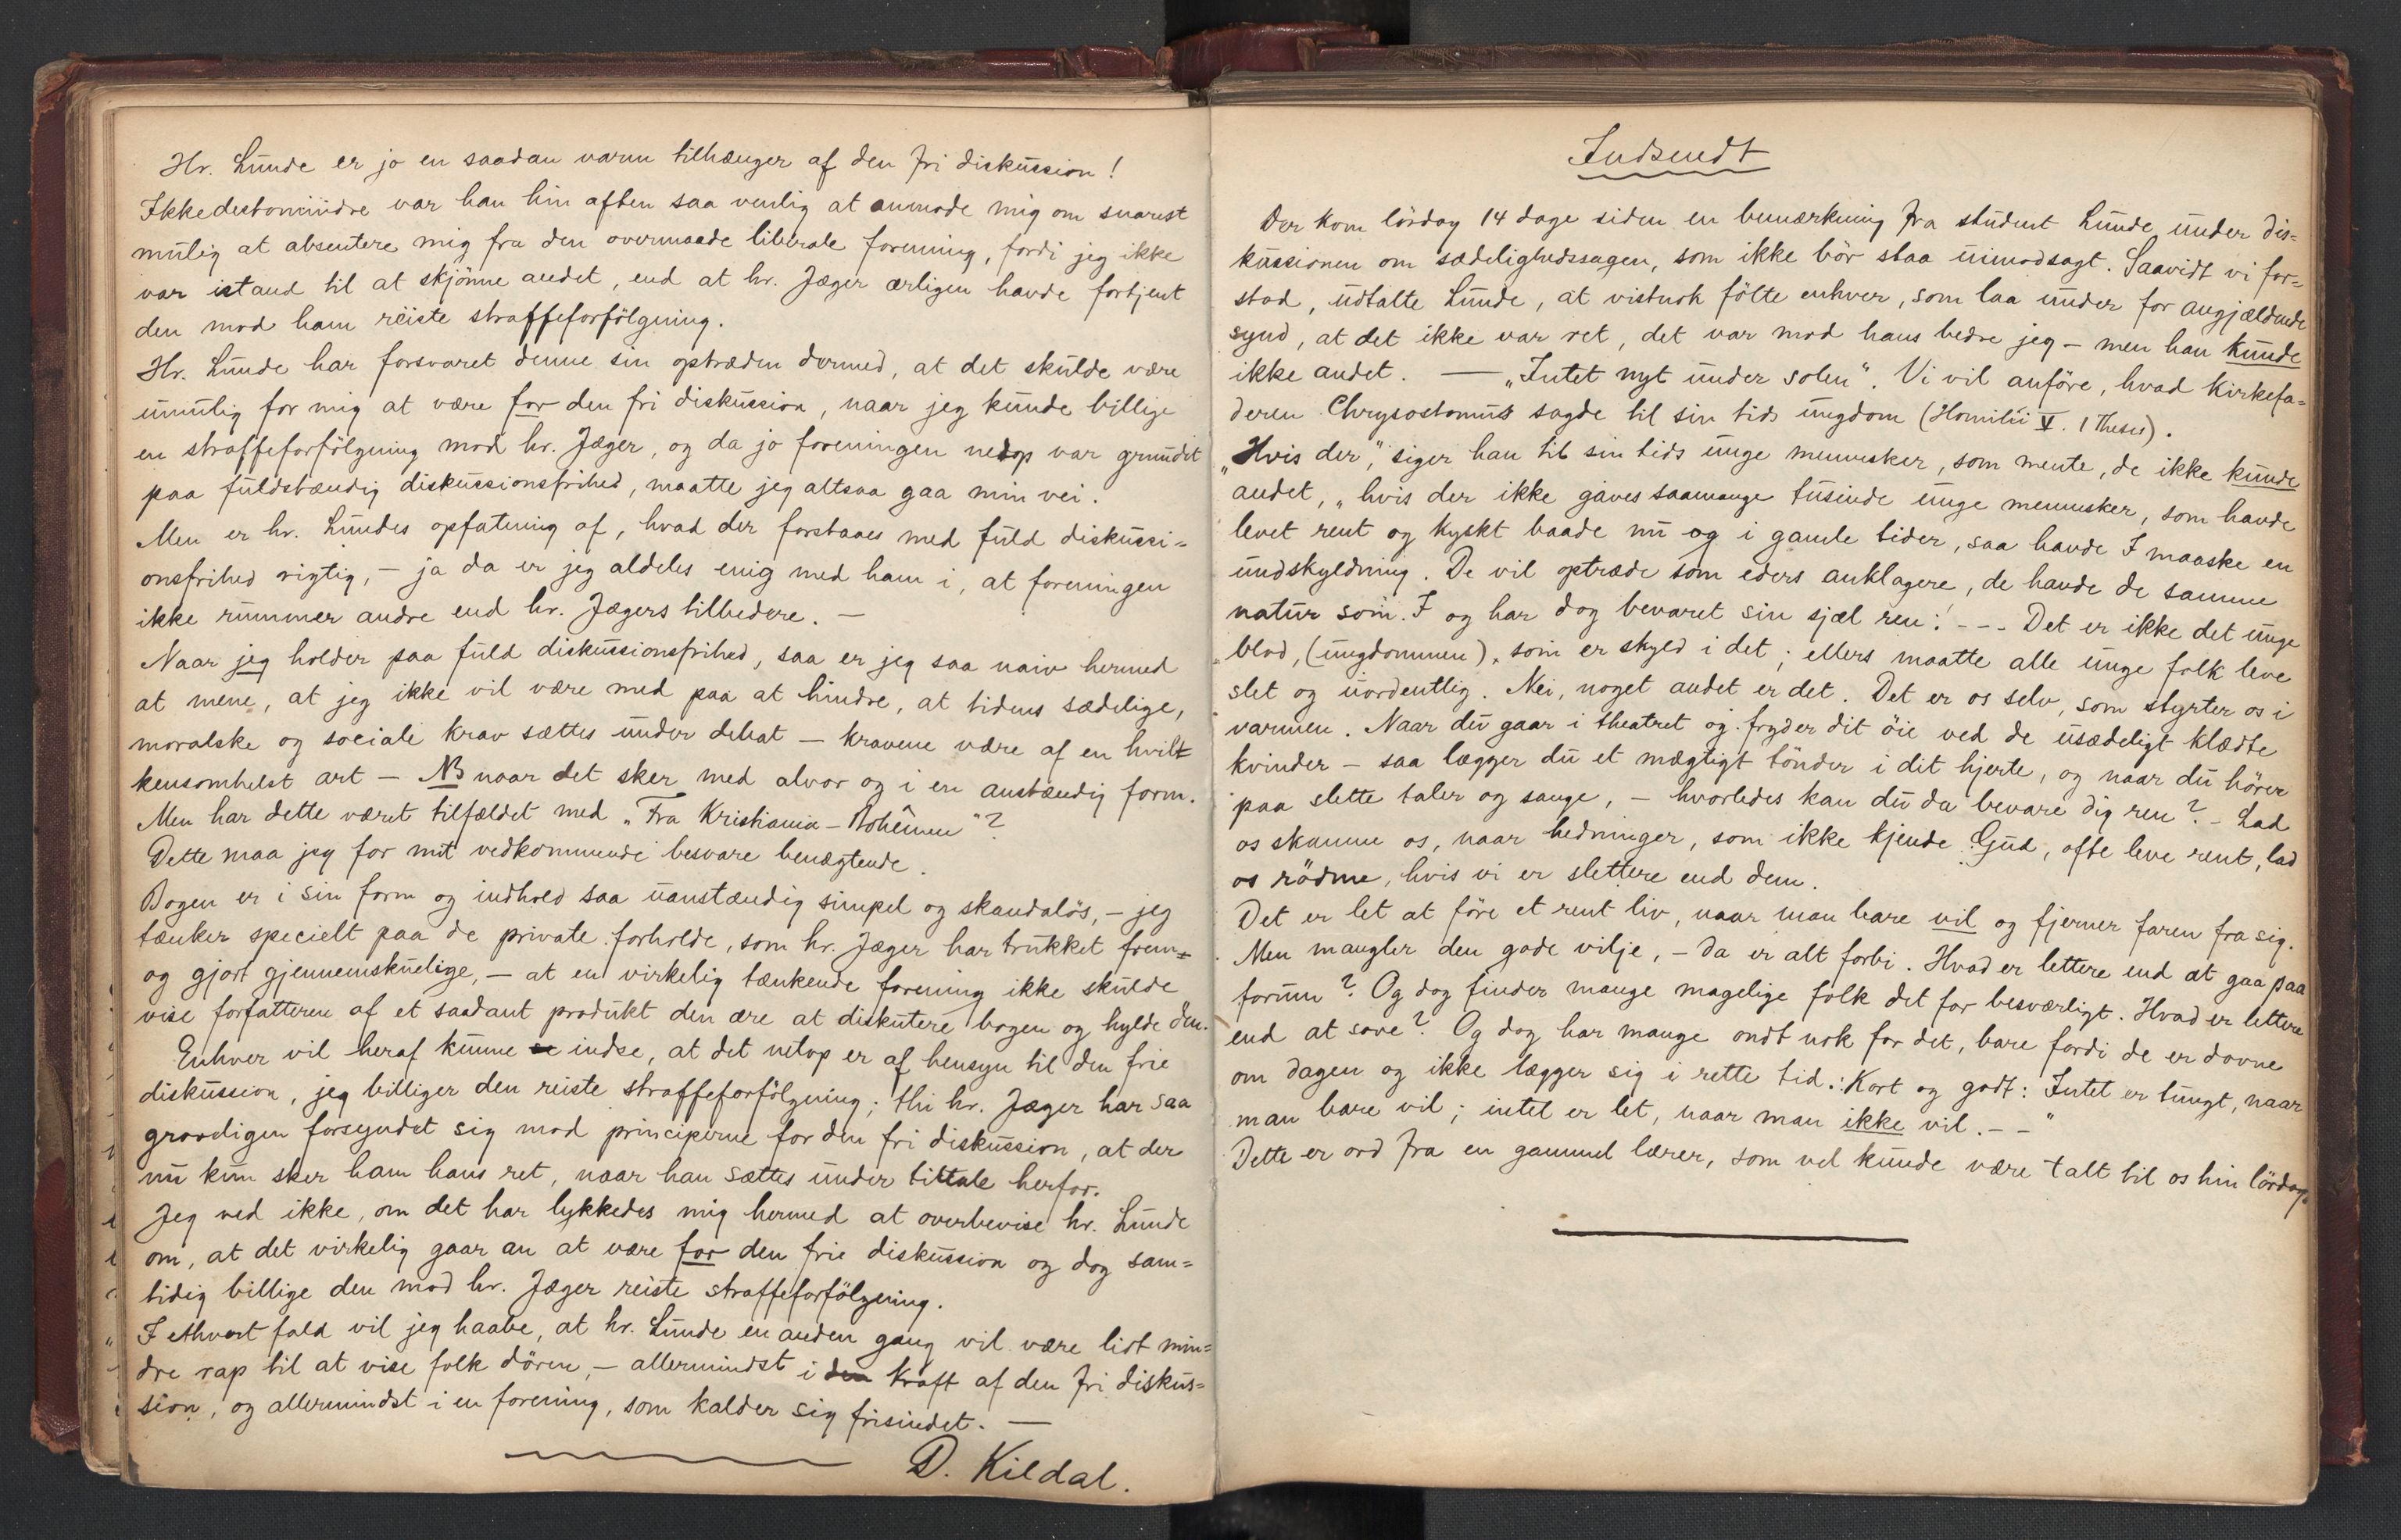 Hr. Lunde er jo en saadan varm tilhænger af den fri diskussion!
Ikkedestomindre var han hin aften saa venlig at anmode mig om snarest
mulig at absentere mig fra den overmaade liberale forening, fordi jeg ikke
var istand til at skjønne andet, end at hr. Jæger ærligen havde fortjent
den mod ham reiste straffeforfölgning.
Hr. Lunde har forsvaret denne sin optræden dermed, at det skulde være
umulig for mig at være for den fri diskussion, naar jeg kunde billige
en straffeforfölgning mod hr. Jæger, og da jo foreningen netop var grundet
paa fuldstændig diskussionsfrihed, maatte jeg altsaa gaa min vei.
Men er hr. Lundes opfatning af, hvad der forstaaes med fuld diskussi=
onsfrihed rigtig, – ja da er jeg aldeles enig med ham i, at foreningen
ikke rummer andre end hr. Jægers tilbedere. –
Naar jeg holder paa fuld diskussionsfrihed, saa er jeg saa naiv hermed
at mene, at jeg ikke vil være med paa at hindre, at tidens sædelige,
moralske og sociale krav sættes under debat – kravene være af en hvil=
kensomhelst art – NB naar det sker med alvor og i en anstændig form.
Men har dette været tilfældet med „Fra Kristiania-Bohêmen"?
Dette maa jeg for mit vedkommende besvare benægtende.
Bogen er i sin form og indhold saa uanstændig simpel og skandalös, – jeg
tænker specielt paa de private forholde, som hr. Jæger har trukket frem=
og gjort gjennemskuelige, – at en virkelig tænkende forening ikke skulde
vise forfatteren af et saadant produkt den ære at diskutere bogen og hylde den.
Enhver vil heraf kunne se indse, at det netop er af hensyn til den frie
diskussion, jeg billiger den reiste straffeforfölgning; thi hr. Jæger har saa
grovéligen forsyndet sig mod principerne for den fri diskussion, at der
nu kun sker ham hans ret, naar han sættes under tiltale herfor.
Jeg ved ikke, om det har lykkedes mig hermed at overbevise hr. Lunde
om, at det virkelig gaar an at være for den frie diskussion og dog sam=
tidig billige den mod hr. Jæger reiste straffeforfölgning.
I ethvert fald vil jeg haabe, at hr. Lunde en anden gang vil være lidt min=
dre rap til at vise folk dören, – allermindst i den kraft af den fri diskus=
sion, og allermindst i en forening, som kalder sig frisindet. –
D. Kildal.
Indsendt
Der kom lördag 14 dage siden en bemærkning fra student Lunde under dis=
kussionen om sædelighedssagen, som ikke bör staa uimodsagt. Saavidt vi for=
stod, udtalte Lunde, at vistnok fölte enhver, som laa under for angjældende
synd, at det ikke var ret, det var mod hans bedre jeg – men han kunde
ikke andet. — „Intet nyt under solen". Vi vil anföre, hvad kirkefa=
deren Chrysostomus sagde til sin tids ungdom (Homilii V. 1 Thess).
„Hvis der", siger han til sin tids unge mennesker, som mente, de ikke kunde
andet, „hvis der ikke gaves saamange tusinde unge mennesker, som havde
levet rent og kyskt baade nu og i gamle tider, saa havde I maaske en
undskyldning. De vil optræde som eders anklagere, de havde de samme
natur som I og har dog bevaret sin sjæl ren! --- Det er ikke det unge
blod, (ungdommen), som er skyld i det; ellers maatte alle unge folk leve
slet og uordentlig. Nei, noget andet er det. Det er os selv, som styrter os i
varmen. Naar du gaar i theatret og fryder dit öie ved de usædeligt klædte
kvinder – saa lægger du et mægtigt tönder i dit hjerte, og naar du hörer
paa slette taler og sange, – hvorledes kan du da bevare dig ren? – Lad
os skamme os, naar hedninger, som ikke kjende Gud, ofte leve rent, lad
os rödme, hvis vi er slettere end dem.
Det er let at före et rent liv, naar man bare vil og fjerner faren fra sig.
Men mangler den gode vilje, – da er alt forbi. Hvad er lettere end at gaa paa
forum? Og dog finder mange magelige folk det for besværligt. Hvad er lettere
end at sove? Og dog har mange ondt nok for det, bare fordi de er dovne
om dagen og ikke lægger sig i rette tid. Kort og godt: Intet er tungt, naar
man bare vil; intet er let, naar man ikke vil. – –"
Dette er ord fra en gammel lærer, som vel kunde være talt til os hin lördag.